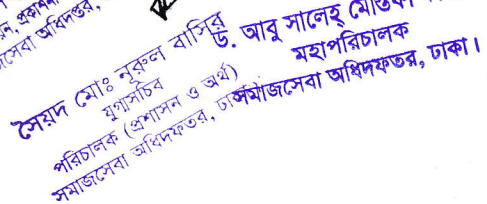 অধিদফতর,
সৈয়দ মোঃ নুরুল বাসির
যুগ্মসচিব
পরিচালক (প্রশাসন ও অর্থ)
সমাজসেবা অধিদফতর, ঢাকা
ড. আবু সালেহ্ মোস্তফা
মহাপরিচালক
সমাজসেবা অধিদফতর, ঢাকা।